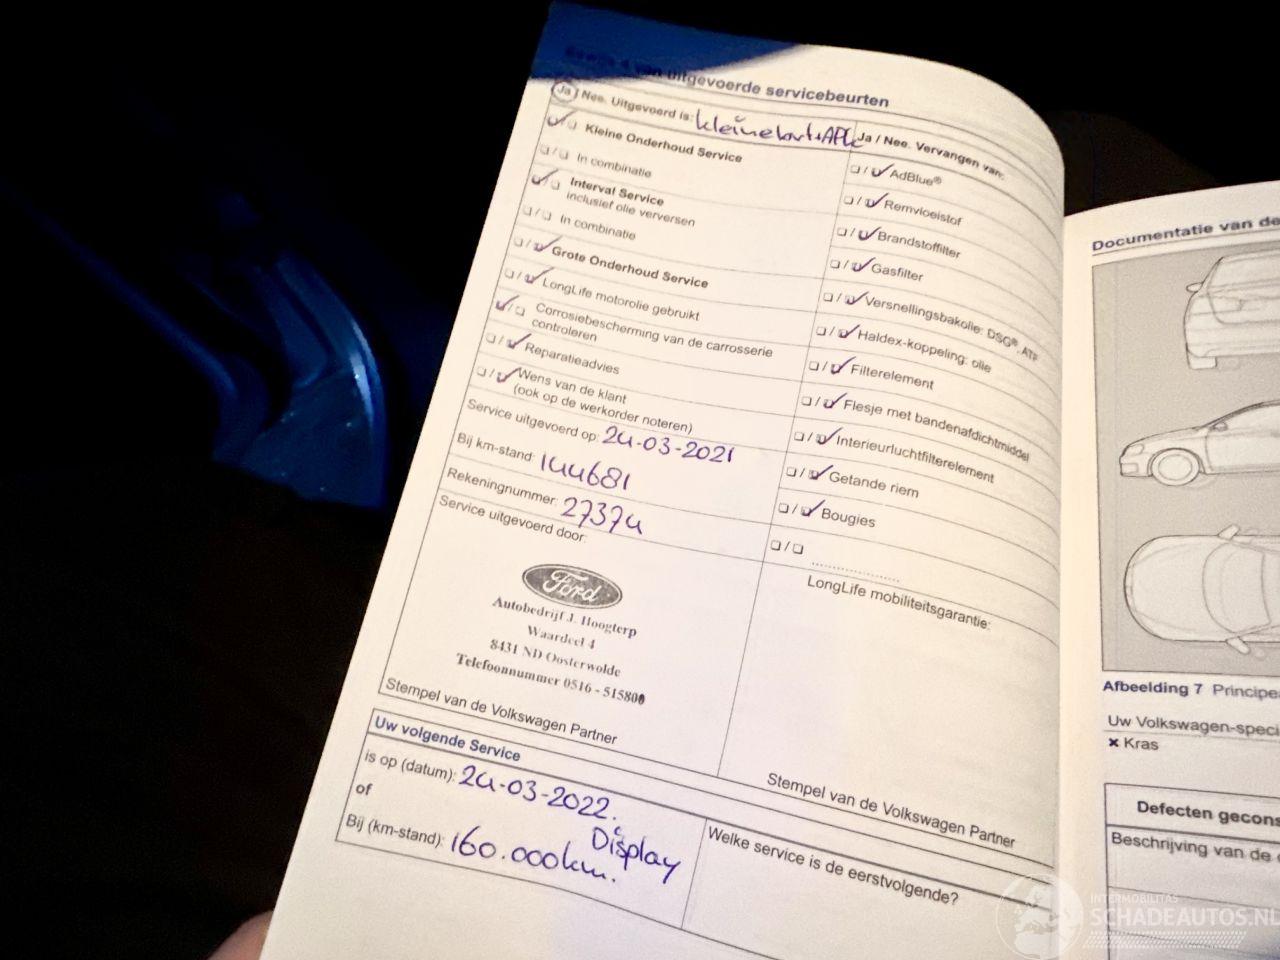 van uitgevoerde servicebeurten
Ja / Nee. Uitgevoerd is: kleine
Kleine Onderhoud Service
In combinatie
Interval Service
inclusief olie verversen
In combinatie
Grote Onderhoud Service
LongLife motorolie gebruikt
Corrosiebescherming van de carrosserie
controleren
Reparatieadvies
Wens van de klant
(ook op de werkorder noteren)
Service uitgevoerd op: 24-03-2021
Bij km-stand: 144681
Rekeningnummer: 27374
Service uitgevoerd door:
Ford
Autobedrijf J. Hoogterp
Waardeel 4
8431 ND Oosterwolde
Telefoonnummer 0516 - 515800
Stempel van de Volkswagen Partner
Ja / Nee. Vervangen van:
AdBlue®
Remvloeistof
Brandstoffilter
Gasfilter
Versnellingsbakolie: DSG®, ATF
Haldex-koppeling: olie
Filterelement
Flesje met bandenafdichtmiddel
Interieurluchtfilterelement
Getande riem
Bougies
LongLife mobiliteitsgarantie:
Stempel van de Volkswagen Partner
Uw volgende Service
is op (datum): 24-03-2022.
of
Display
Bij (km-stand): 160.000km.
Welke service is de eerstvolgende?
Documentatie van de
Afbeelding 7 Principe
Uw Volkswagen-speci
× Kras
Defecten gecons
Beschrijving van de
INTERMOBILITAS
SCHADEAUTOS.NL